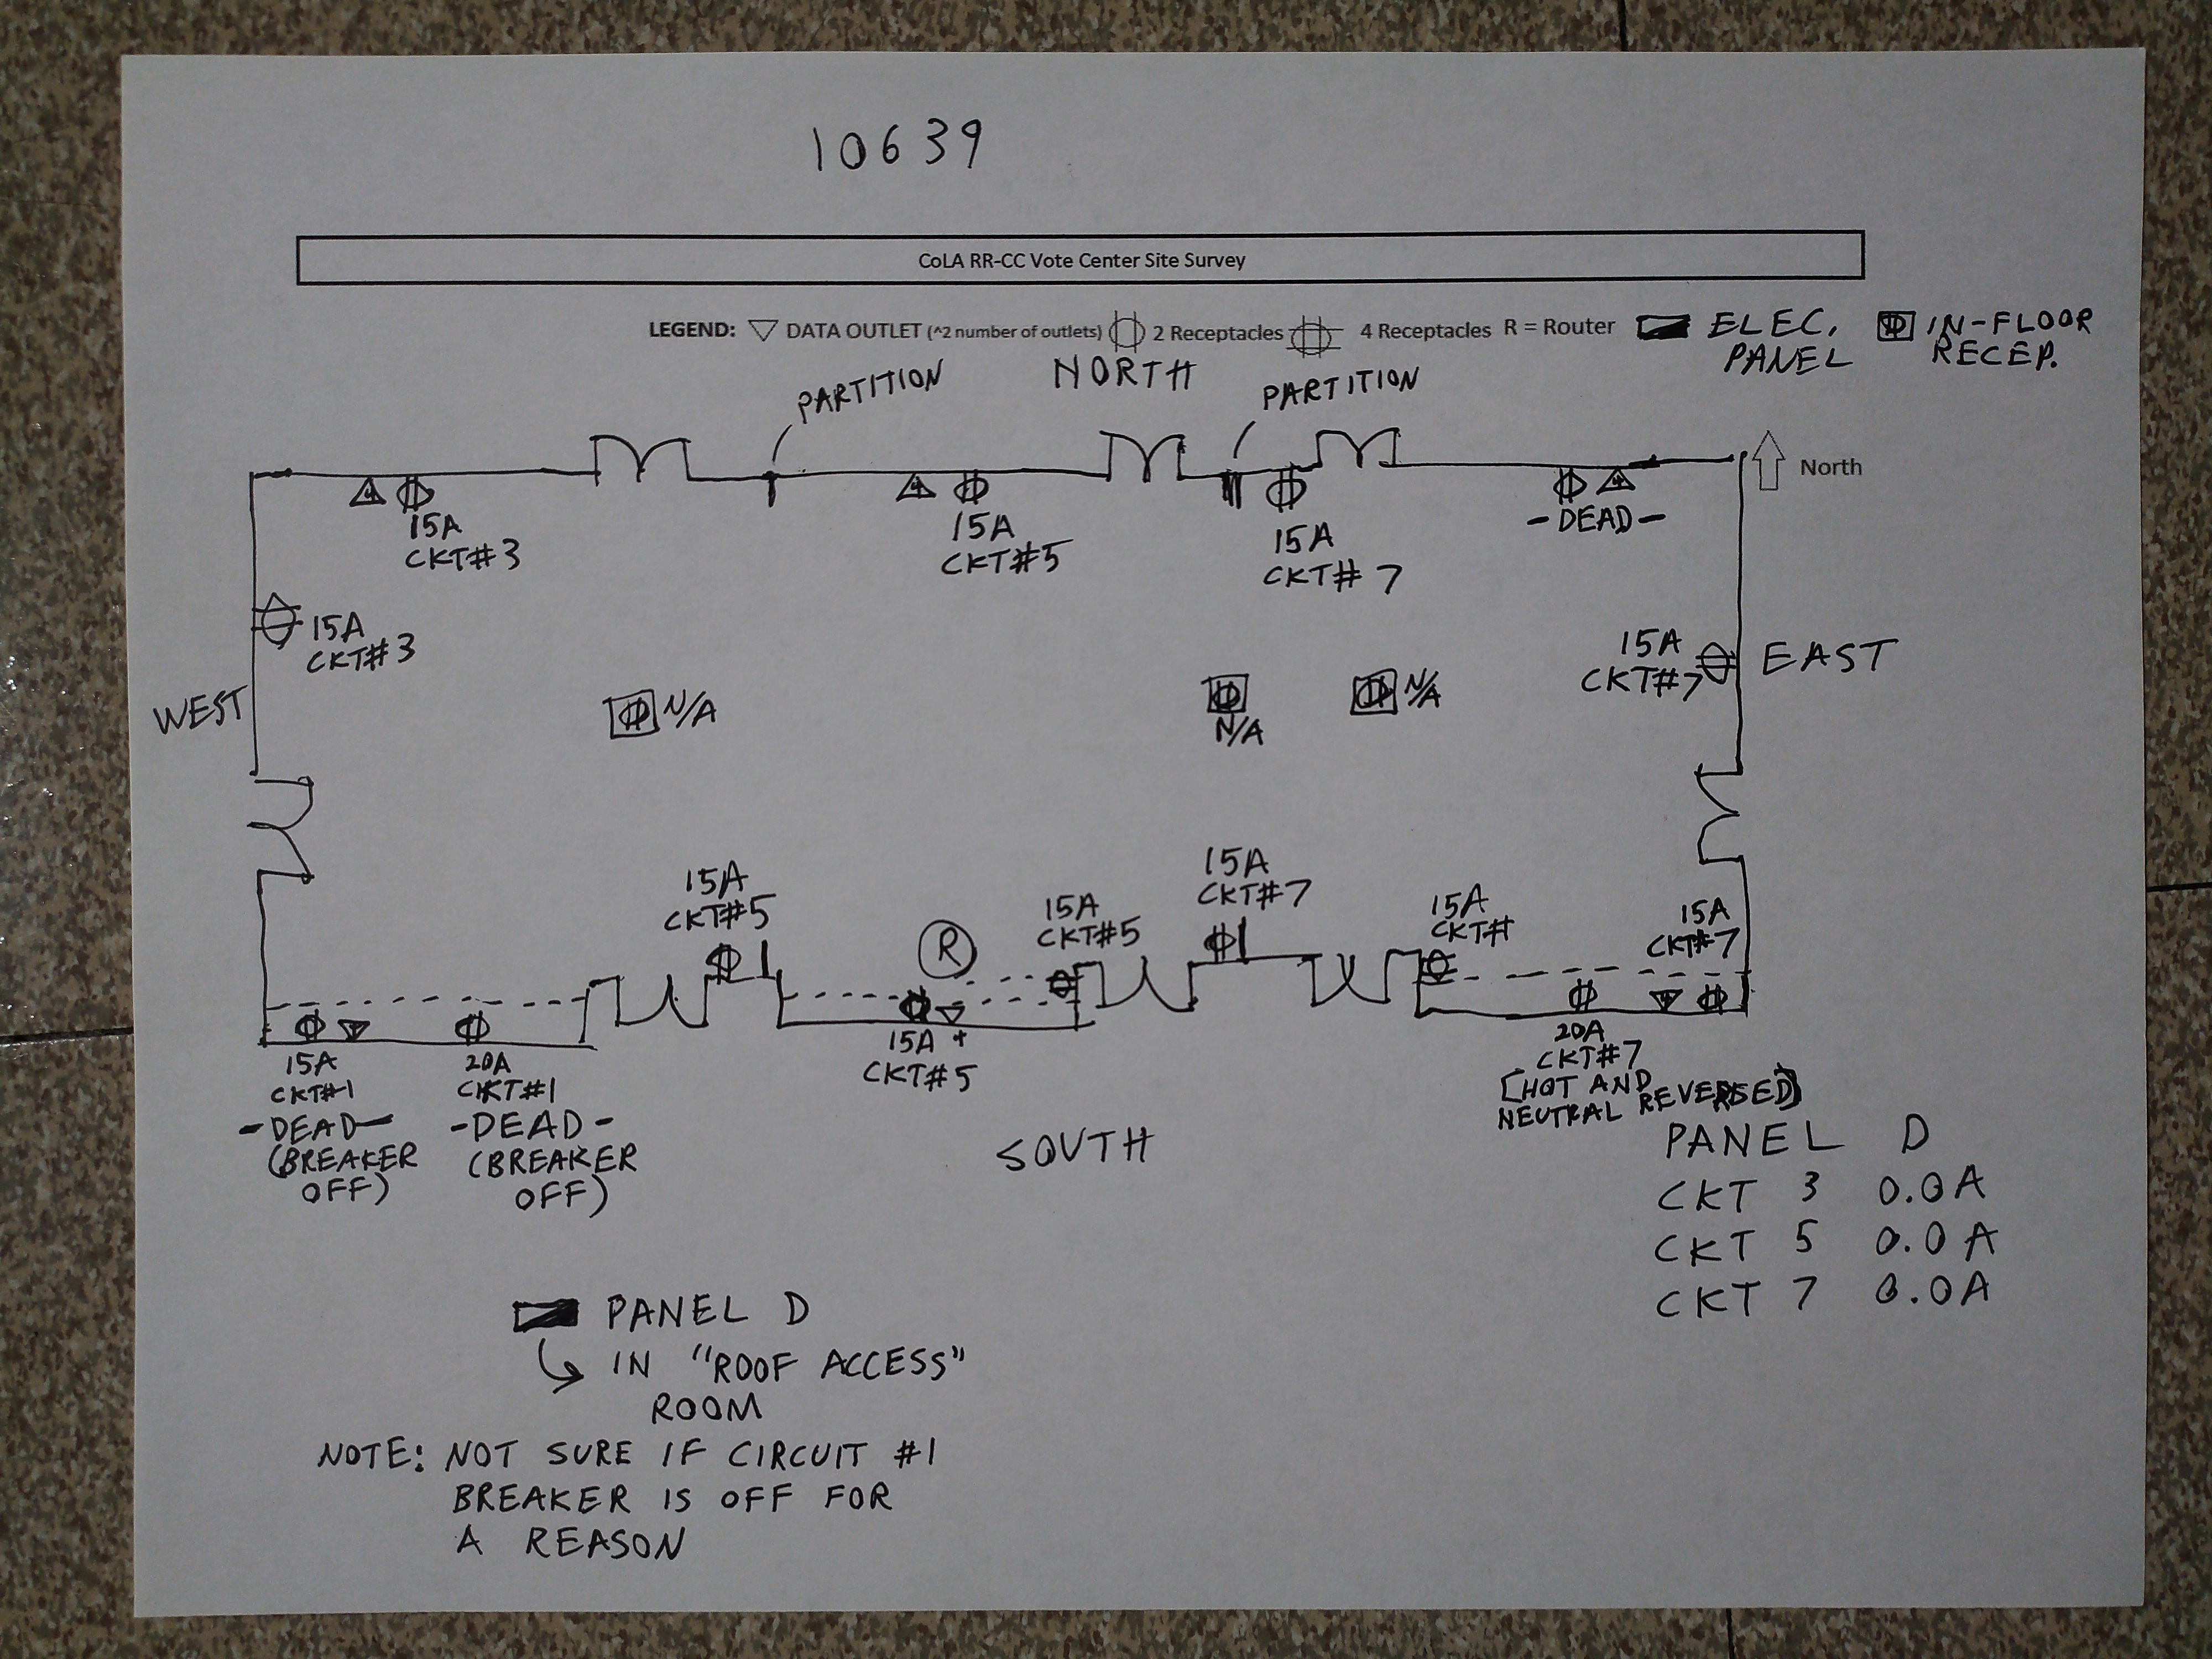 10639
CoLA RR-CC Vote Center Site Survey
LEGEND: DATA OUTLET (^2 number of outlets) 2 Receptacles 4 Receptacles R = Router ELEC. PANEL IN-FLOOR RECEP.
PARTITION
NORTH
PARTITION
North
4
15A
CKT#3
4
15A
CKT#5
15A
CKT#7
4
-DEAD-
15A
CKT#3
WEST
N/A
N/A
N/A
15A
CKT#7
EAST
15A
CKT#5
R
15A
CKT#5
15A
CKT#7
15A
CKT#
15A
CKT#7
15A
CKT#1
-DEAD-
(BREAKER
OFF)
20A
CKT#1
-DEAD-
(BREAKER
OFF)
15A +
CKT#5
20A
CKT#7
[HOT AND
NEUTRAL REVERSED]
SOUTH
PANEL D
CKT 3 0.0A
CKT 5 0.0A
CKT 7 0.0A
PANEL D
IN "ROOF ACCESS"
ROOM
NOTE: NOT SURE IF CIRCUIT #1
BREAKER IS OFF FOR
A REASON